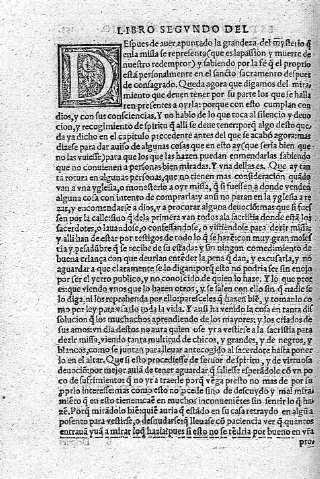 LIBRO SEGVNDO DEL
DEspues de auer apuntado la grandeza del mysterio q̃
en la missa se representa (que es la passion y muerte de
nuestro redemptor) y sabiendo por la fe q̃ el proprio
està personalmente en el sancto sacramento despues
de consagrado. Queda agora que digamos del mira
miento que deuen tener por su parte los que se halla
ren presentes a oyrla: porque con esto cumplan con
dios, y con sus consciencias. Y no hablo de lo que toca al silencio y deuo
cion, y recogimiento de spiritu q̃ alli se deue tener porq̃ algo desto que
da ya dicho en el capitulo precedente antes del que se acabó agora: mas
dizese para dar auiso de algunas cosas que en esto ay (que seria bien que
no las vuiesse) para que los que las hazen puedan emendarlas sabiendo
que no conuienen a personas bien miradas. Y vna dellas es. Que ay tan
ta rotura en algunas personas, que no tienen mas consideracion quãdo
van a vna yglesia, o monesterio a oyr missa, q̃ si fuessen a donde venden
alguna cosa con intento de comprarla: y ansi no paran en la yglesia a re
zar, y encomendarse a dios, y a procurar alguna deuocion: mas que si fues
sen por la calle: sino q̃ dela primera van todos a la sacristia donde està los
sacerdotes, o lauandole, o confessandose, o vistiendole para dezir missa:
y alli han de estar por testigos de todo lo q̃ se haze: con muy gran moles
tia y pesadũbre q̃ se recibe de su estada: y sin ningun comedimiento de
buena criança con que deurian entender la pena q̃ dan, y escusarla, y no
aguardar a que claramente se lo digan: porq̃ esto no podria ser sin enojo
por ser el yerro publico, y no conocido de quien lo haze. Y lo que
que viendo vnos que lo hazen otros, y se salen con ello sin q̃ nadie se
lo diga, ni los reprehenda por ello: paresceles q̃ hazen biẽ, y tomanlo co
mo por ley para vsarlo toda la vida. Y ansi ha venido la cosa en tanta dis
solucion q̃ los muchachos aprendiendo de los mayores: y los criados de
sus amos: en vn dia destos no aura quien ose yr a vestirse a la sacristia para
dezir missa, viendo tanta multitud de chicos, y grandes, y de negros, y
blancos, como se juntan para lleuar antecogido al sacerdote hasta poner
lo en el altar. Que si esto procediesse de feruor de spiritu, y de virtuosa
deuociõ: por mejor auia de tener aguardar q̃ saliesse esperãdole cõ vn po
co de sufrimiento: q̃ no yr a traerle porq̃ vẽga presto no mas de por su
pprio interesse: mas como esto no puede sino de descuydo y mal mira
miẽto q̃ en esto tienen: caẽ en muchos inconueniẽtes sin sentir lo q̃ ha
zẽ. Porq̃ mirãdolo biẽ: quiẽ auria q̃ estãdo en su casa retraydo en algũ a
posento para vestirse, o desnudarse: q̃ lleuasse cõ paciencia ver q̃ quantos
entrauã yuã a mirar lo q̃ hazia: pues si esto no se tẽdria por bueno en vna
pro-